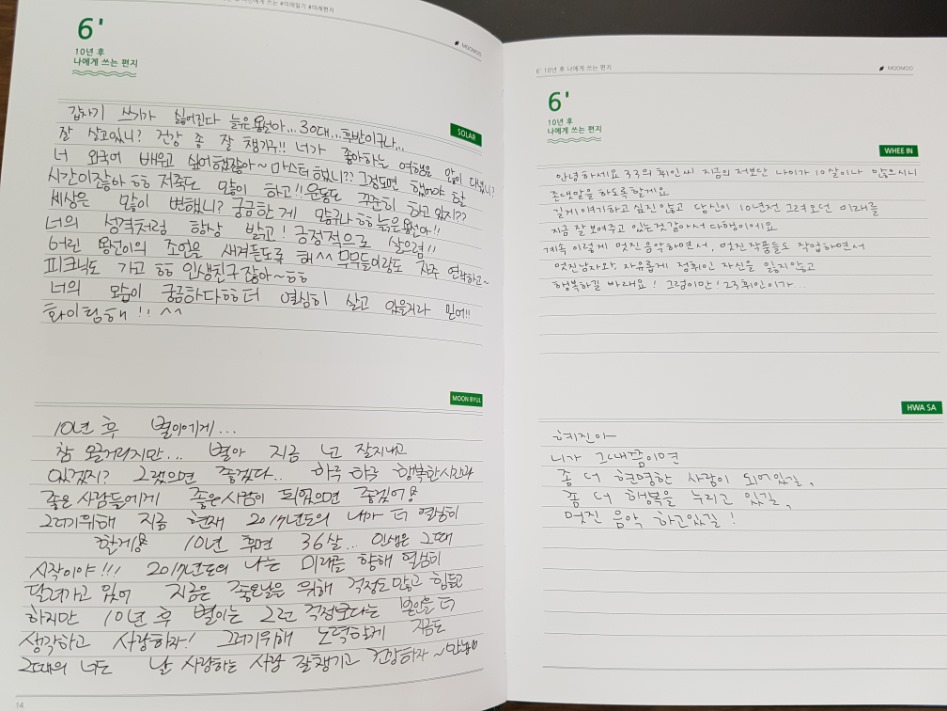 쓰는 #미래일기 #미래편지
MOOMOO
6'
10년 후
나에게 쓰는 편지
SOLAR
갑자기 쓰기가 싫어진다 늙은용선아... 30대... 후반이구나...
잘 살고있니? 건강 좀 잘 챙기구!! 너가 좋아하는 여행은 많이 다녔니?
너 외국어 배우고 싶어했잖아~ 마스터 했니?? 그정도면 했어야 할
시간이잖아 ㅎㅎ 저축도 많이 하고!! 운동도 꾸준히 하고 있지??
세상은 많이 변했니? 궁금한게 많구나 ㅎㅎ 늙은용선아!!
너의 성격처럼 항상 밝고! 긍정적으로 살으렴!!
어린 용선이의 조언을 새겨듣도록 해^^ 무무들이랑도 자주 연락하고~
피크닉도 가고 ㅎㅎ 인생친구잖아~ㅎㅎ
너의 모습이 궁금하다ㅎㅎ 더 열심히 살고 있을거라 믿어!!
화이팅해!! ^^
MOON BYUL
10년 후 별이에게...
참 오글거리지만... 별아 지금 넌 잘지내고
있겠지? 그랬으면 좋겠다.. 하루 하루 행복한시간과
좋은 사람들에게 좋은사람이 되었으면 좋겠어
그러기위해 지금 현재 2017년도의 내가 더 열심히
할게 10년 후면 36살... 인생은 그때
시작이야!!! 2017년도의 나는 미래를 향해 열심히
달려가고 있어 지금은 좋은날을 위해 걱정도 많고 힘들고
하지만 10년 후 별이는 그런 걱정보다는 본인을 더
생각하고 사랑하자! 그러기위해 노력할게 지금도
그때의 너도 날 사랑하는 사람 잘챙기고 건강하자~ 안녕
14
6' 10년 후 나에게 쓰는 편지
MOOMOO
6'
10년 후
나에게 쓰는 편지
WHEE IN
안녕하세요 33의 휘인씨 지금의 저보단 나이가 10살이나 많으시니
존댓말을 하도록할게요
길게이야기하고 싶진 않고 당신이 10년전 그려오던 미래를
지금 잘 보여주고 있는것 같아서 다행이에요
계속 이렇게 멋진음악하면서, 멋진작품들도 작업하면서
멋진남자와, 자유롭게 정휘인 자신을 잃지않고
행복하길 바래요! 그럼이만! 23휘인이가...
HWA SA
혜진아
니가 그때쯤이면
좀 더 현명한 사람이 되어있길,
좀 더 행복을 누리고 있길,
멋진 음악 하고있길!